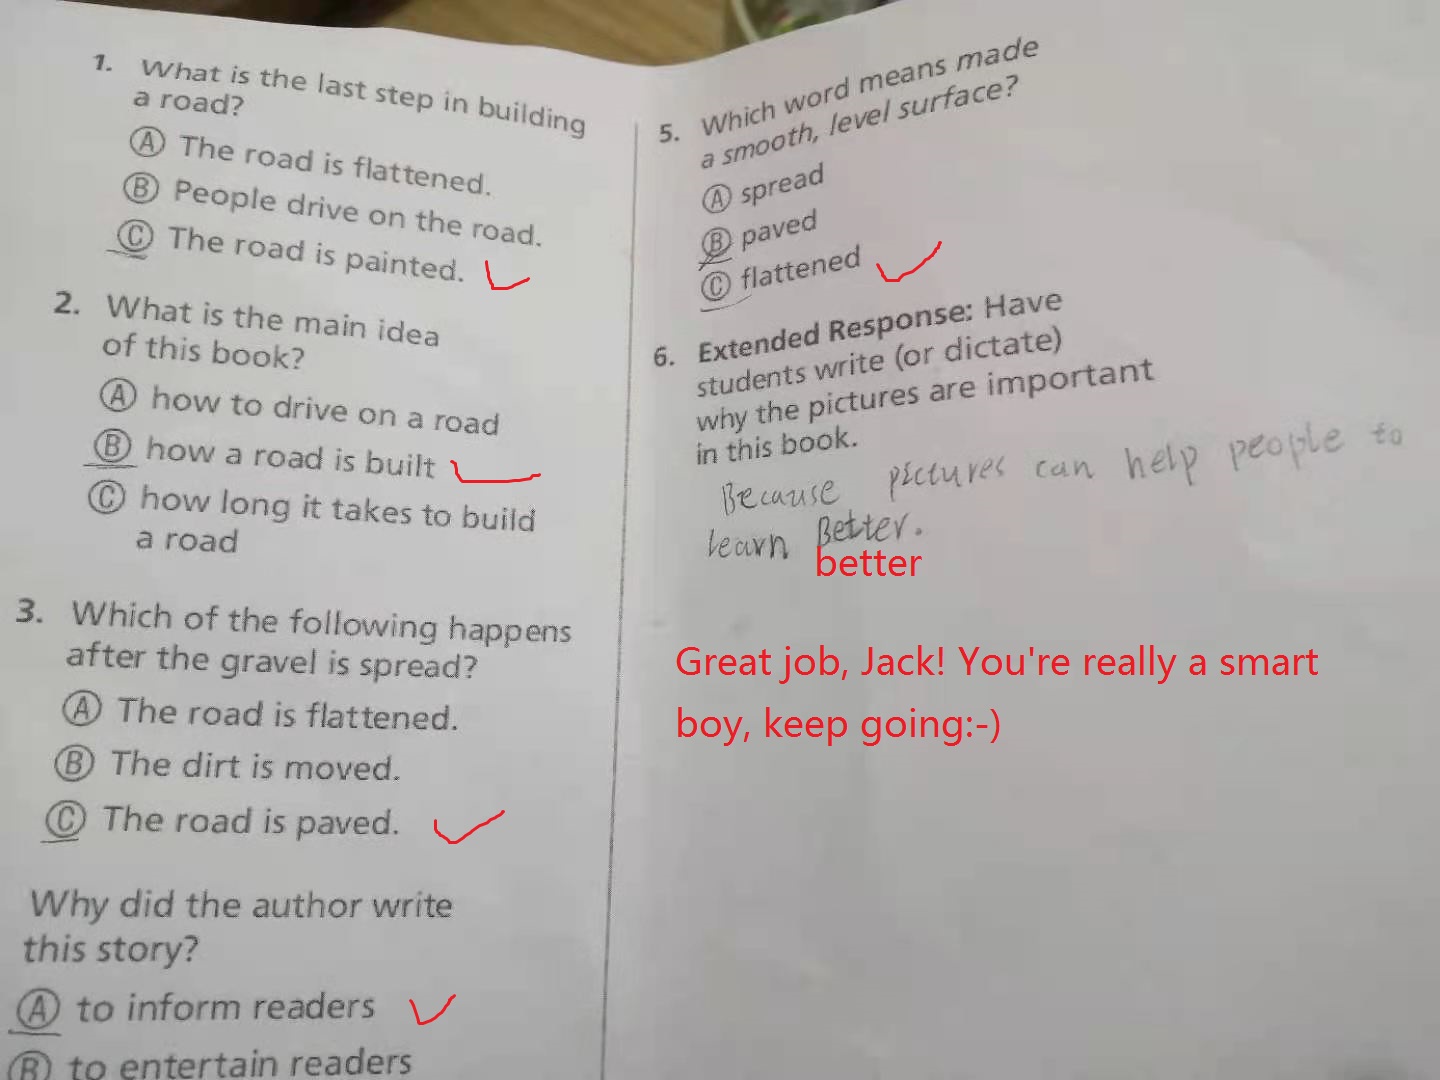 1. What is the last step in building
a road?
Ⓐ The road is flattened.
Ⓑ People drive on the road.
Ⓒ The road is painted.
2. What is the main idea
of this book?
Ⓐ how to drive on a road
Ⓑ how a road is built
Ⓒ how long it takes to build
a road
3. Which of the following happens
after the gravel is spread?
Ⓐ The road is flattened.
Ⓑ The dirt is moved.
Ⓒ The road is paved.
Why did the author write
this story?
Ⓐ to inform readers
Ⓑ to entertain readers
5. Which word means made
a smooth, level surface?
Ⓐ spread
Ⓑ paved
Ⓒ flattened
6. Extended Response: Have
students write (or dictate)
why the pictures are important
in this book.
Because pictures can help people to
learn Better.
better
Great job, Jack! You're really a smart
boy, keep going:-)